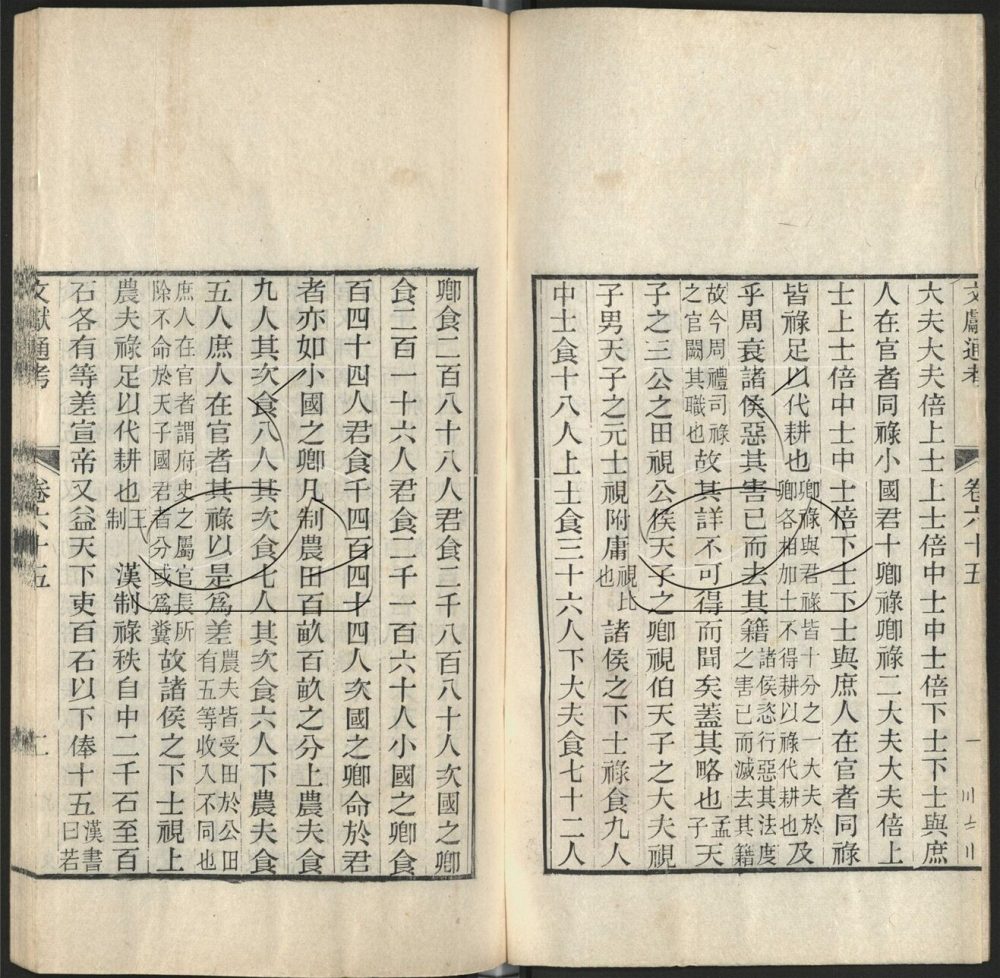 文獻通考 卷六十五 一
大夫大夫倍上士上士倍中士中士倍下士下士與庶
人在官者同祿小國君十卿祿卿祿二大夫大夫倍上
士上士倍中士中士倍下士下士與庶人在官者同祿
皆祿足以代耕也卿祿與君祿皆十分之一大夫於卿各相加士不得耕以祿代耕也及
乎周衰諸侯惡其害已而去其籍諸侯恣行惡其法度之害已而滅去其籍
故今周禮司祿之官闕其職也故其詳不可得而聞矣蓋其略也孟子天
子之三公之田視公侯天子之卿視伯天子之大夫視
子男天子之元士視附庸視比也諸侯之下士祿食九人
中士食十八人上士食三十六人下大夫食七十二人
卿食二百八十八人君食二千八百八十人次國之卿
食二百一十六人君食二千一百六十人小國之卿食
百四十四人君食千四百四十四人次國之卿命於君
者亦如小國之卿凡制農田百畝百畝之分上農夫食
九人其次食八人其次食七人其次食六人下農夫食
五人庶人在官者其祿以是爲差農夫皆受田於公田有五等收入不同也
庶人在官者謂府史之屬官長所除不命於天子國君者分或爲糞故諸侯之下士視上
農夫祿足以代耕也王制漢制祿秩自中二千石至百
石各有等差宣帝又益天下吏百石以下俸十五漢書曰若
文獻通考 卷六十五 二